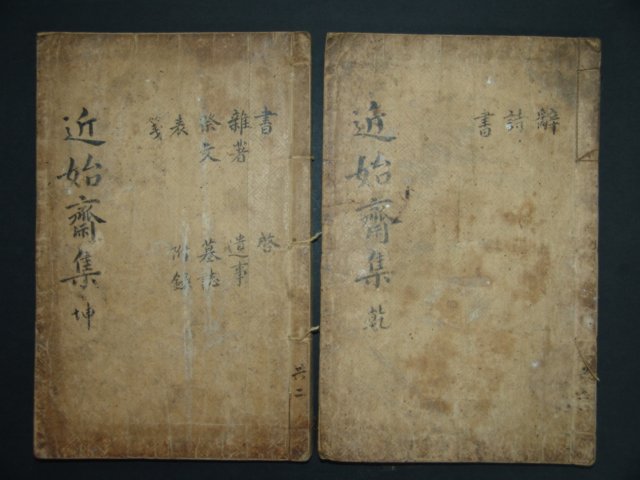 近始齋集 乾
辭
詩
書
近始齋集 坤
書 啓
雜著 遺事
祭文 墓誌
表 附錄
箋
共二